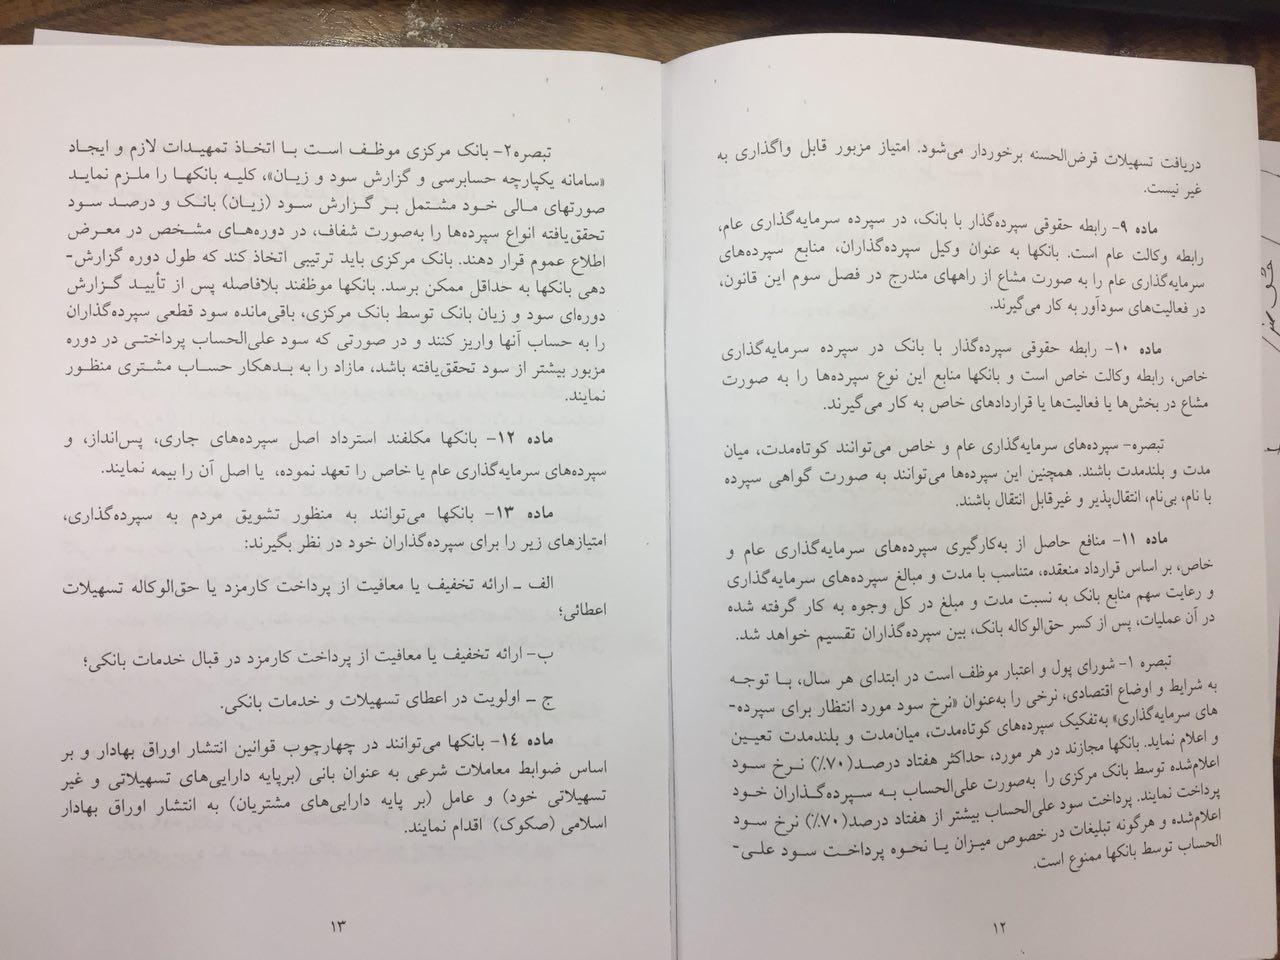 دریافت تسهیلات قرض‌الحسنه برخوردار می‌شود. امتیاز مزبور قابل واگذاری به
غیر نیست.
ماده ۹- رابطه حقوقی سپرده‌گذار با بانک، در سپرده سرمایه‌گذاری عام،
رابطه وکالت عام است. بانکها به عنوان وکیل سپرده‌گذاران، منابع سپرده‌های
سرمایه‌گذاری عام را به صورت مشاع از راههای مندرج در فصل سوم این قانون،
در فعالیت‌های سودآور به کار می‌گیرند.
ماده ۱۰- رابطه حقوقی سپرده‌گذار با بانک در سپرده سرمایه‌گذاری
خاص، رابطه وکالت خاص است و بانکها منابع این نوع سپرده‌ها را به صورت
مشاع در بخش‌ها یا فعالیت‌ها یا قراردادهای خاص به کار می‌گیرند.
تبصره- سپرده‌های سرمایه‌گذاری عام و خاص می‌توانند کوتاه‌مدت، میان
مدت و بلندمدت باشند. همچنین این سپرده‌ها می‌توانند به صورت گواهی سپرده
با نام، بی‌نام، انتقال‌پذیر و غیرقابل انتقال باشند.
ماده ۱۱- منافع حاصل از به‌کارگیری سپرده‌های سرمایه‌گذاری عام و
خاص، بر اساس قرارداد منعقده، متناسب با مدت و مبالغ سپرده‌های سرمایه‌گذاری
و رعایت سهم منابع بانک به نسبت مدت و مبلغ در کل وجوه به کار گرفته شده
در آن عملیات، پس از کسر حق‌الوکاله بانک، بین سپرده‌گذاران تقسیم خواهد شد.
تبصره ۱- شورای پول و اعتبار موظف است در ابتدای هر سال، با توجه
به شرایط و اوضاع اقتصادی، نرخی را به‌عنوان «نرخ سود مورد انتظار برای سپرده-
های سرمایه‌گذاری» به‌تفکیک سپرده‌های کوتاه‌مدت، میان‌مدت و بلندمدت تعیین
و اعلام نماید. بانکها مجازند در هر مورد، حداکثر هفتاد درصد(۷۰٪) نرخ سود
اعلام‌شده توسط بانک مرکزی را به‌صورت علی‌الحساب به سپرده‌گذاران خود
پرداخت نمایند. پرداخت سود علی‌الحساب بیشتر از هفتاد درصد(۷۰٪) نرخ سود
اعلام‌شده و هرگونه تبلیغات در خصوص میزان یا نحوه پرداخت سود علی-
الحساب توسط بانکها ممنوع است.
۱۲
تبصره۲- بانک مرکزی موظف است با اتخاذ تمهیدات لازم و ایجاد
«سامانه یکپارچه حسابرسی و گزارش سود و زیان»، کلیه بانکها را ملزم نماید
صورتهای مالی خود مشتمل بر گزارش سود (زیان) بانک و درصد سود
تحقق‌یافته انواع سپرده‌ها را به‌صورت شفاف، در دوره‌های مشخص در معرض
اطلاع عموم قرار دهند. بانک مرکزی باید ترتیبی اتخاذ کند که طول دوره گزارش-
دهی بانکها به حداقل ممکن برسد. بانکها موظفند بلافاصله پس از تأیید گزارش
دوره‌ای سود و زیان بانک توسط بانک مرکزی، باقی‌مانده سود قطعی سپرده‌گذاران
را به حساب آنها واریز کنند و در صورتی که سود علی‌الحساب پرداختی در دوره
مزبور بیشتر از سود تحقق‌یافته باشد، مازاد را به بدهکار حساب مشتری منظور
نمایند.
ماده ۱۲- بانکها مکلفند استرداد اصل سپرده‌های جاری، پس‌انداز، و
سپرده‌های سرمایه‌گذاری عام یا خاص را تعهد نموده، یا اصل آن را بیمه نمایند.
ماده ۱۳- بانکها می‌توانند به منظور تشویق مردم به سپرده‌گذاری،
امتیازهای زیر را برای سپرده‌گذاران خود در نظر بگیرند:
الف ـ ارائه تخفیف یا معافیت از پرداخت کارمزد یا حق‌الوکاله تسهیلات
اعطائی؛
ب- ارائه تخفیف یا معافیت از پرداخت کارمزد در قبال خدمات بانکی؛
ج ـ اولویت در اعطای تسهیلات و خدمات بانکی.
ماده ۱۴- بانکها می‌توانند در چهارچوب قوانین انتشار اوراق بهادار و بر
اساس ضوابط معاملات شرعی به عنوان بانی (برپایه دارایی‌های تسهیلاتی و غیر
تسهیلاتی خود) و عامل (بر پایه دارایی‌های مشتریان) به انتشار اوراق بهادار
اسلامی (صکوک) اقدام نمایند.
۱۳